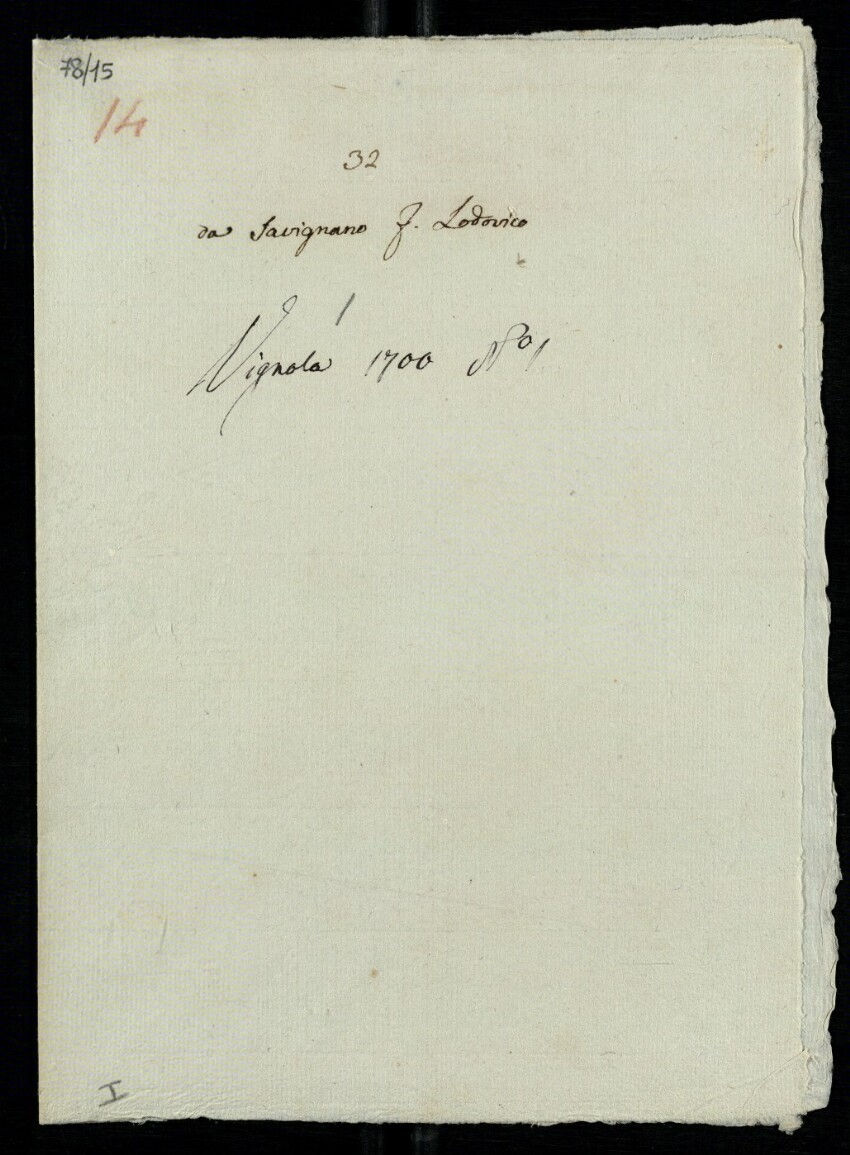 78/15
14
32
da Savignano F. Lodovico
1
Vignola 1700 No 1
I